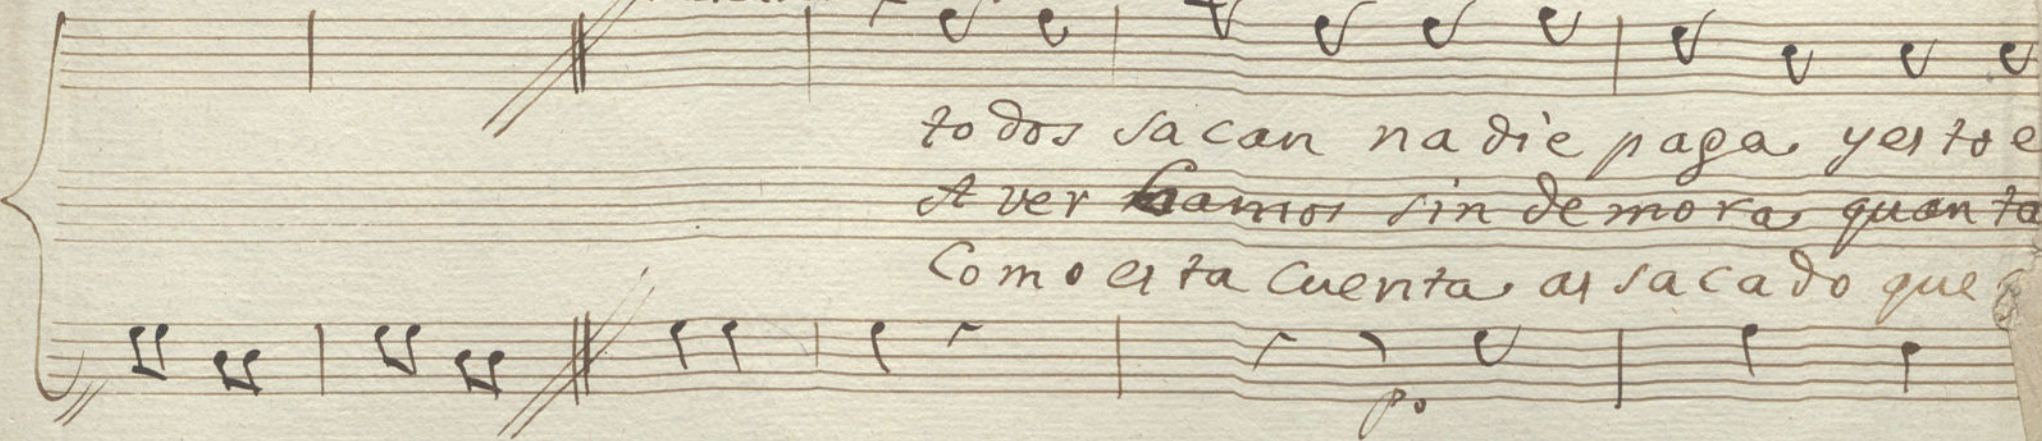 todos sacan nadie paga yesto e
A ver bamos sin demora quanto
Como esta Cuenta as sacado que
p.o